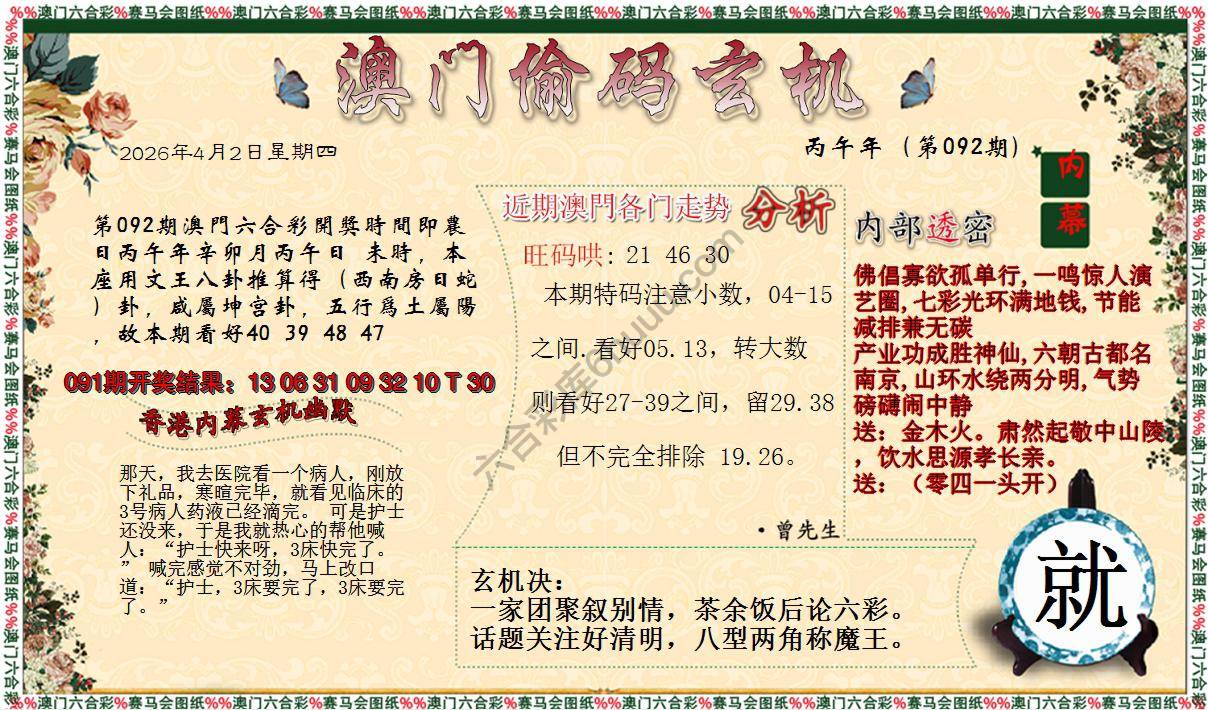 %%澳门六合彩%赛马会图纸%%澳门六合彩%赛马会图纸%%澳门六合彩%赛马会图纸%%澳门六合彩%赛马会图纸%%澳门六合彩%赛马会图纸%%澳门六合彩%赛马会图纸%%
澳门偷码玄机
2026年4月2日星期四
丙午年（第092期）
内
幕
第092期澳門六合彩開獎時間即農
日丙午年辛卯月丙午日 未時，本
座用文王八卦推算得（西南房日蛇
）卦，咸屬坤宫卦，五行爲土屬陽
，故本期看好40 39 48 47
091期开奖结果：13 06 31 09 32 10 T 30
香港内幕玄机幽默
那天，我去医院看一个病人，刚放
下礼品，寒暄完毕，就看见临床的
3号病人药液已经滴完。 可是护士
还没来，于是我就热心的帮他喊
人：“护士快来呀，3床快完了。
” 喊完感觉不对劲，马上改口
道：“护士，3床要完了，3床要完
了。”
近期澳門各门走势 分析
旺码哄: 21 46 30
本期特码注意小数，04-15
之间.看好05.13，转大数
则看好27-39之间，留29.38
但不完全排除 19.26。
·曾先生
六合彩库6huuu.com
内部透密
佛倡寡欲孤单行,一鸣惊人演
艺圈,七彩光环满地钱,节能
减排兼无碳
产业功成胜神仙,六朝古都名
南京,山环水绕两分明,气势
磅礴闹中静
送：金木火。肃然起敬中山陵
，饮水思源孝长亲。
送：（零四一头开）
玄机决：
一家团聚叙别情，茶余饭后论六彩。
话题关注好清明，八型两角称魔王。
就
%%澳门六合彩%赛马会图纸%%澳门六合彩%赛马会图纸%%澳门六合彩%赛马会图纸%%澳门六合彩%赛马会图纸%%澳门六合彩%赛马会图纸%%澳门六合彩%赛马会图纸%%